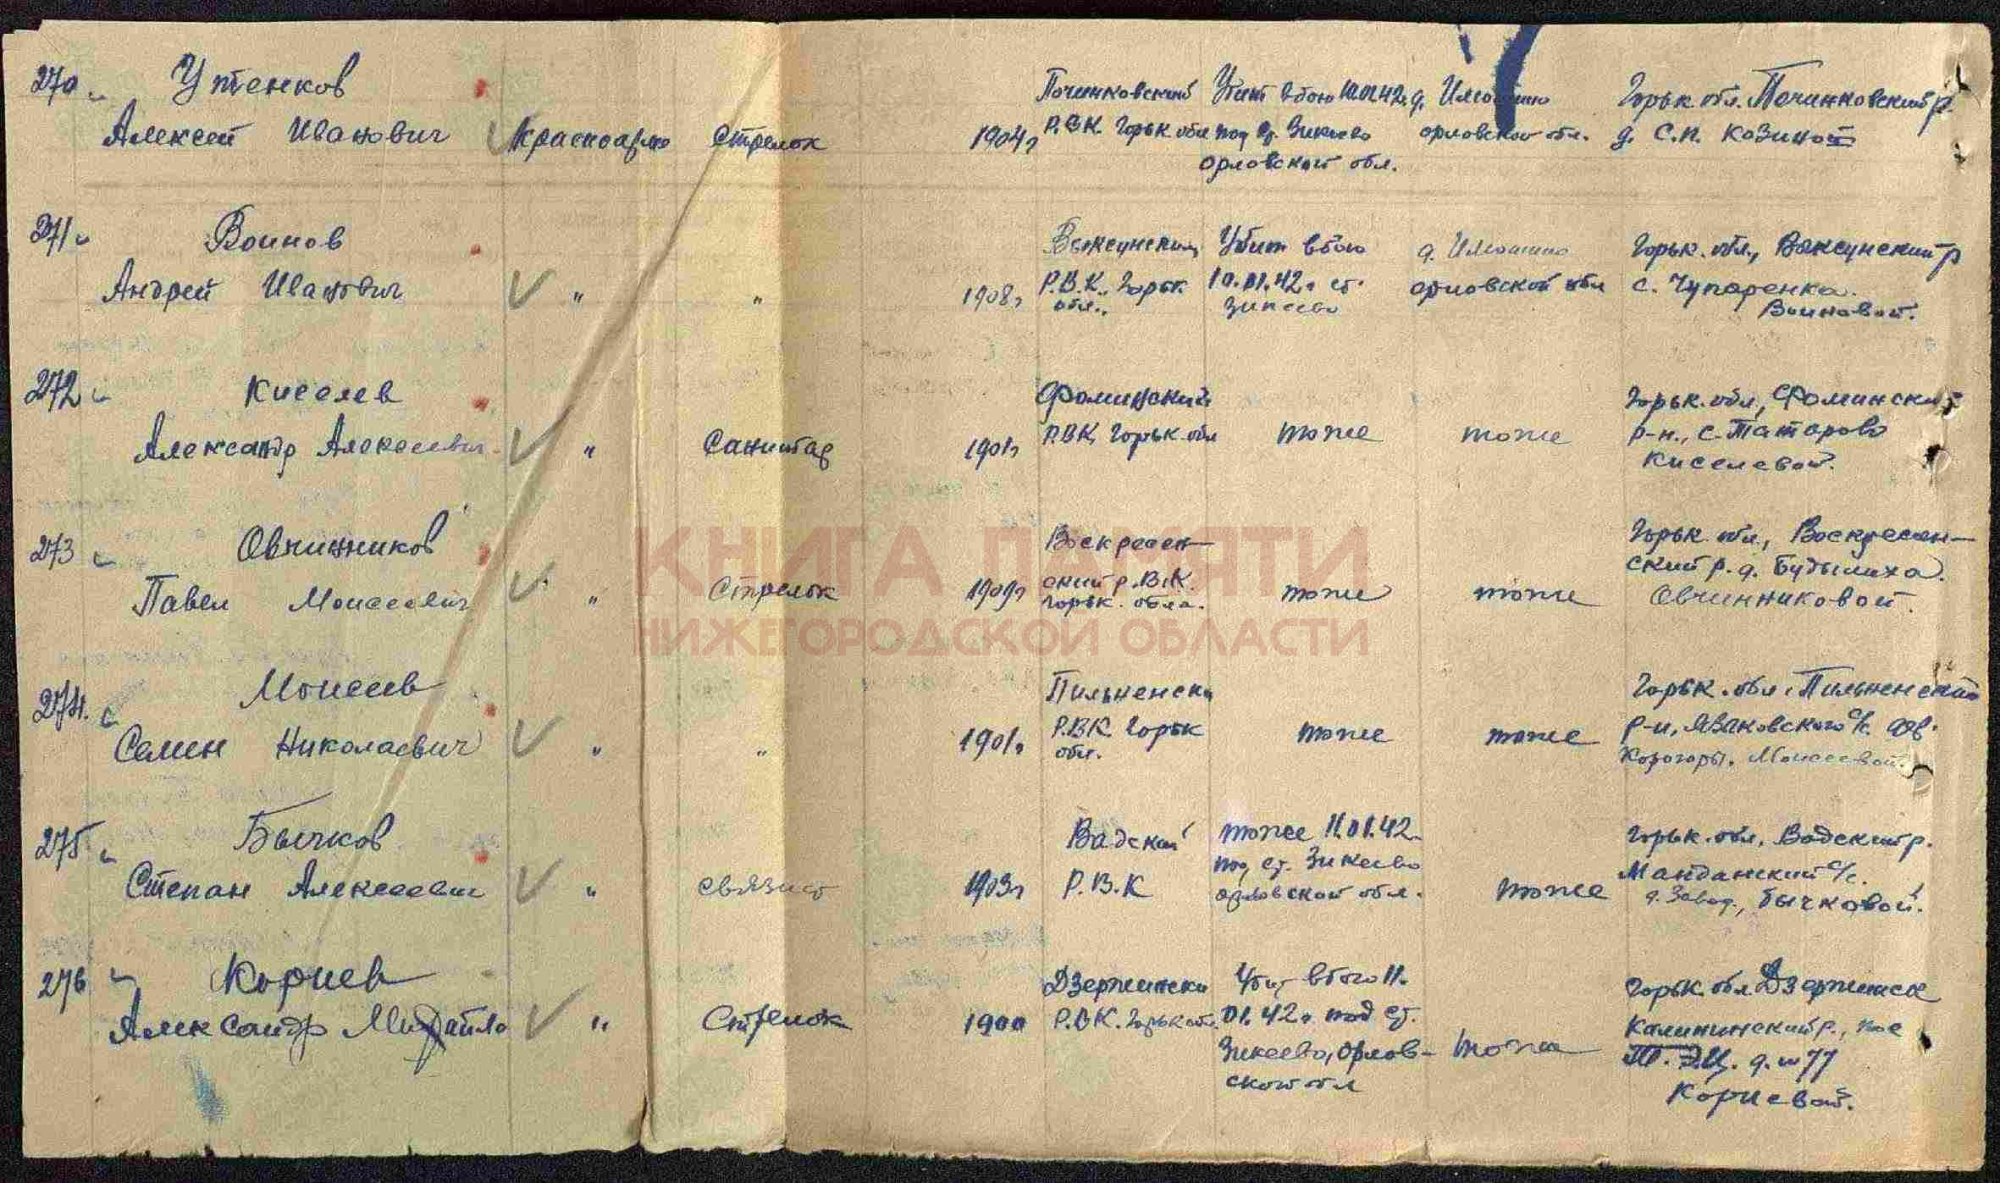 270 Утенков Починковский Убит в бою 10.01.42 г. д. Горьк. обл. Починковский р.
Алексей Иванович красноарм стрелок 1904 г Р.В.К. Горьк обл под ст. Зикеево орловской обл. д. С.п. Казино
орловской обл.
271 Воинов Выксунский Убит в бою д. Горьк. обл., Ваксунский р
Андрей Иванович " " 1908 г Р.В.К. Горьк 10.01.42 г ст. орловской обл с. Чупаренка.
обл. Зикеево Воиновой.
272 Киселев Фоминский Горьк. обл, Фоминский
Александр Алексеевич " Санитар 1901 г РВК Горьк. обл тоже тоже р-н., с. Татарово
Киселевой.
273 Овчинников Воскресен- Горьк. обл, Воскресен-
Павел Моисеевич " Стрелок 1909 г ский р.В.К. тоже тоже ский р. д. Будылиха.
горьк. обла. Овчинниковой.
274. Моисеев Пильненски Горьк. обл. Пильненский
Семен Николаевич " " 1901 г Р.В.К. Горьк тоже тоже р-н, с/с.
обл. Моисеевой.
275 Бычков Вадский тоже 11.01.42 Горьк. обл, Вадский р.
Степан Алексеевич " связист 1903 г Р.В.К под ст. Зикеево тоже с/с.
орловской обл. д. Завод, Бычковой.
276 Корнев Дзержински Убит в бою 11. Горьк. обл Дзержинск
Александр Михайло " Стрелок 1900 Р.В.К. Горьк обл. 01.42 г под ст. тоже Калининский р, пос
Зикеево, Орлов- Т.Э.Ц. д. № 77
ской обл Корневой.
КНИГА ПАМЯТИ
НИЖЕГОРОДСКОЙ ОБЛАСТИ